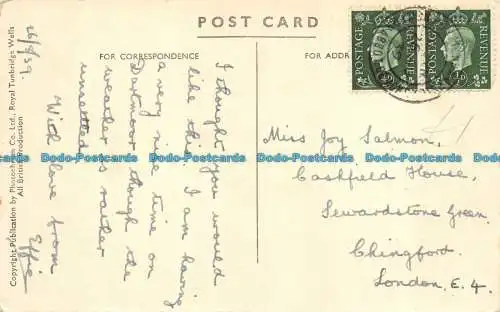 POST CARD
FOR CORRESPONDENCE
FOR ADDR
29/8/39.
I thought you would
like this. I am having
a very nice time on
Dartmoor though the
weather is rather
unsettled
With love from
Effie
Miss Joy Salmon,
Cashfield House,
Sewardstone Green,
Chingford.
London. E. 4.
POSTAGE
REVENUE
POSTAGE
REVENUE
Copyright Publication by Photochrom Co. Ltd., Royal Tunbridge Wells
All British Production
Dodo-Postcards Dodo-Postcards Dodo-Postcards Dodo-Postcards Dodo-Postcards